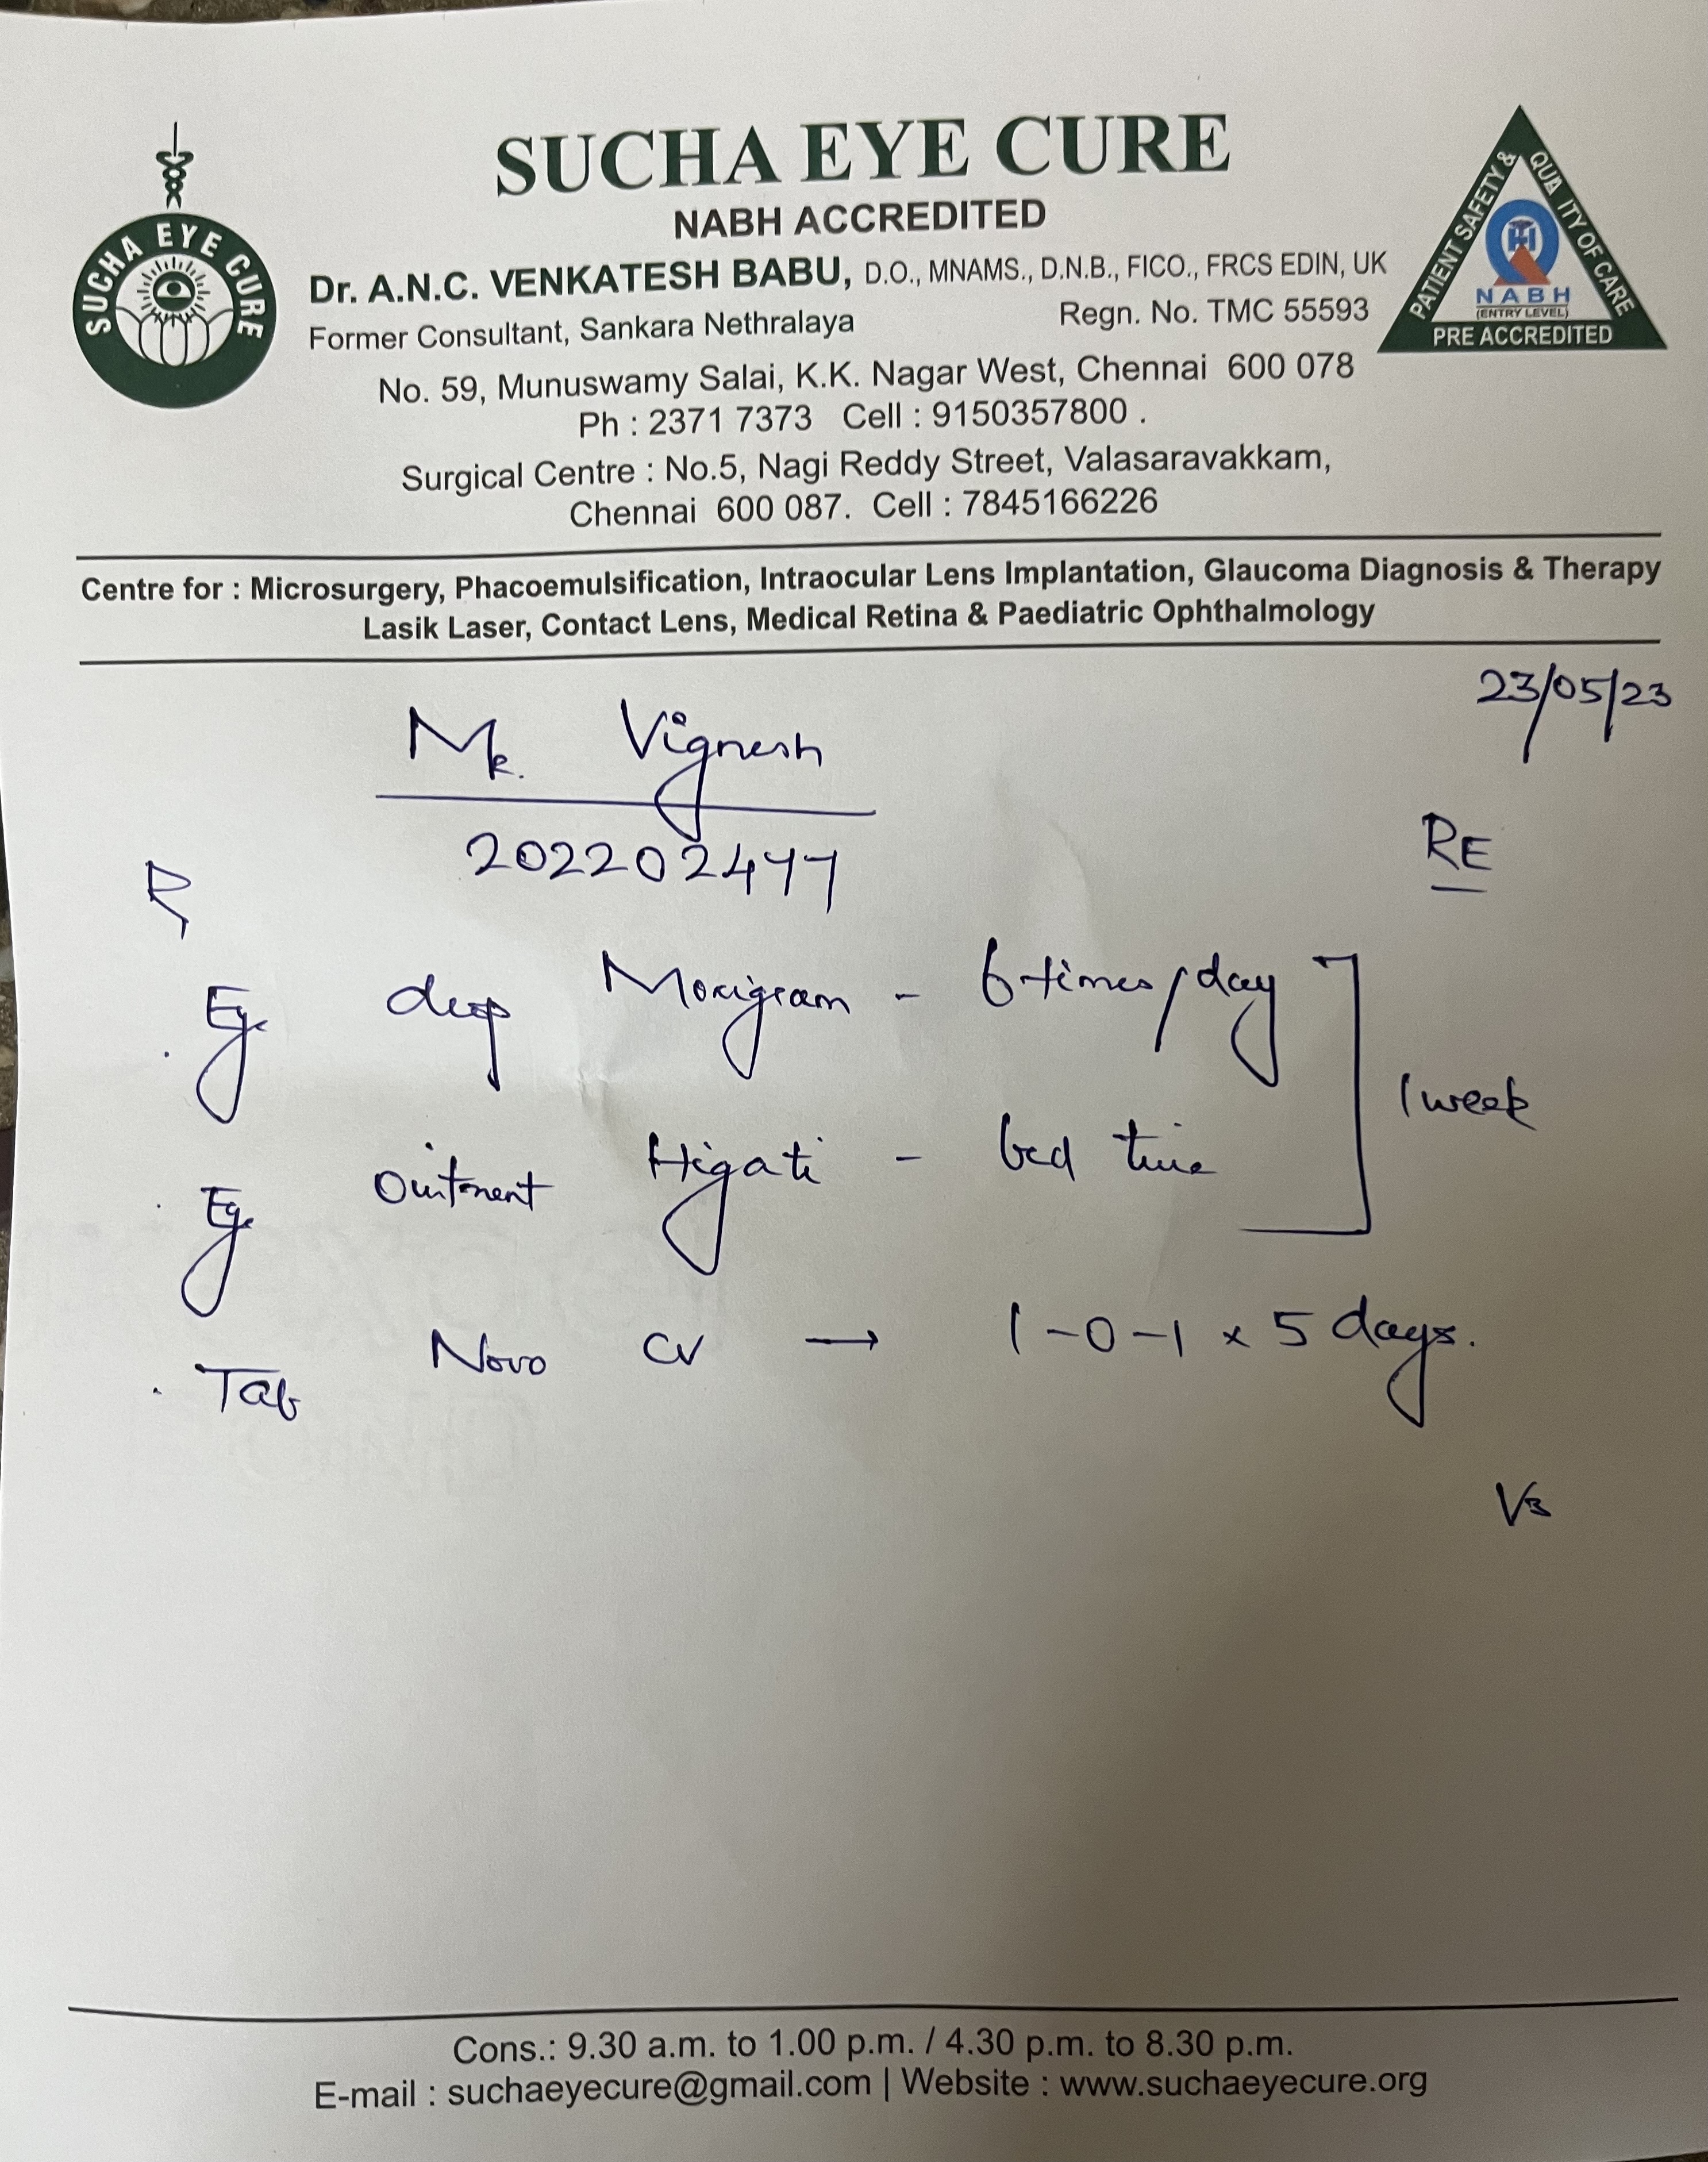 SUCHA EYE CURE
SUCHA EYE CURE
NABH ACCREDITED
Dr. A.N.C. VENKATESH BABU, D.O., MNAMS., D.N.B., FICO., FRCS EDIN, UK
Former Consultant, Sankara Nethralaya Regn. No. TMC 55593
No. 59, Munuswamy Salai, K.K. Nagar West, Chennai 600 078
Ph : 2371 7373 Cell : 9150357800 .
Surgical Centre : No.5, Nagi Reddy Street, Valasaravakkam,
Chennai 600 087. Cell : 7845166226
PATIENT SAFETY & QUA ITY OF CARE
NABH
(ENTRY LEVEL)
PRE ACCREDITED
Centre for : Microsurgery, Phacoemulsification, Intraocular Lens Implantation, Glaucoma Diagnosis & Therapy
Lasik Laser, Contact Lens, Medical Retina & Paediatric Ophthalmology
23/05/23
Mr. Vignesh
RE
Eye drop Moxigram - 6 times/day
1 week
Eye Ointment Higati - bed time
Tab Novo CV → 1-0-1 x 5 days.
VB
Cons.: 9.30 a.m. to 1.00 p.m. / 4.30 p.m. to 8.30 p.m.
E-mail : suchaeyecure@gmail.com | Website : www.suchaeyecure.org